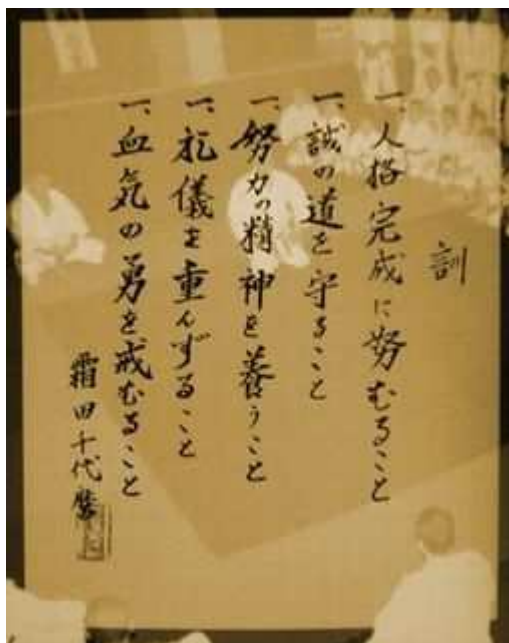 訓
一、人格完成に努むること
一、誠の道を守ること
一、努力の精神を養うこと
一、礼儀を重んずること
一、血気の勇を戒むること
霜田千代麿